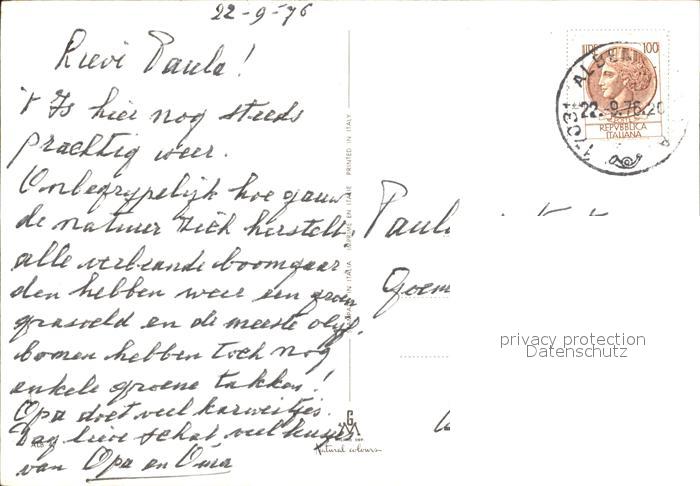 22-9-76
Lieve Paula!
't Is hier nog steeds
prachtig weer.
Onbegrypelijk hoe gauw
de natuur zich herstelt.
alle verbrande boomgaar
den hebben weer een groen
grasveld en de meeste olyf.
bomen hebben toch nog
enkele groene takken!
Opa doet veel karweitjes.
Dag lieve schat, veel kusjes
van Opa en Oma
PRINTED IN ITALY
IMPRIMÉ EN ITALIE
STAMPATO IN ITALIA
Natural colours
LIRE 100
ALBEN
17031
22.-9.76.20
POSTE
REPVBBLICA
ITALIANA
Paula
Goem
privacy protection
Datenschutz